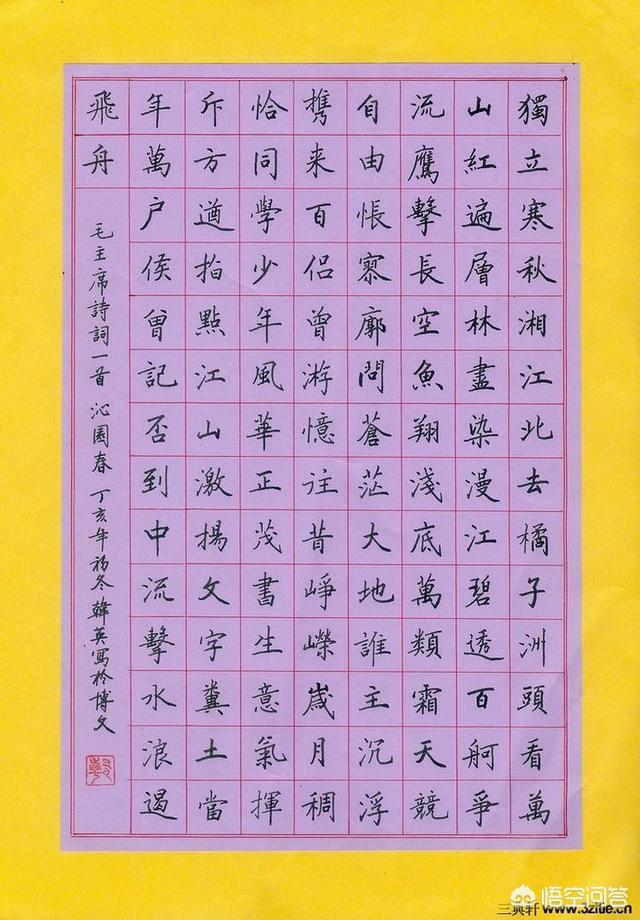 獨立寒秋湘江北去橘子洲頭看萬
山紅遍層林盡染漫江碧透百舸爭
流鷹擊長空魚翔淺底萬類霜天競
自由悵寥廓問蒼茫大地誰主沉浮
携来百侣曾游憶往昔崢嶸歲月稠
恰同學少年風華正茂書生意氣揮
斥方遒指點江山激揚文字糞土當
年萬户侯曾記否到中流擊水浪遏
飛舟
毛主席詩詞一首 沁園春 丁亥年初冬韓英寫於博文
三典轩 www.3zitie.cn
悟空问答